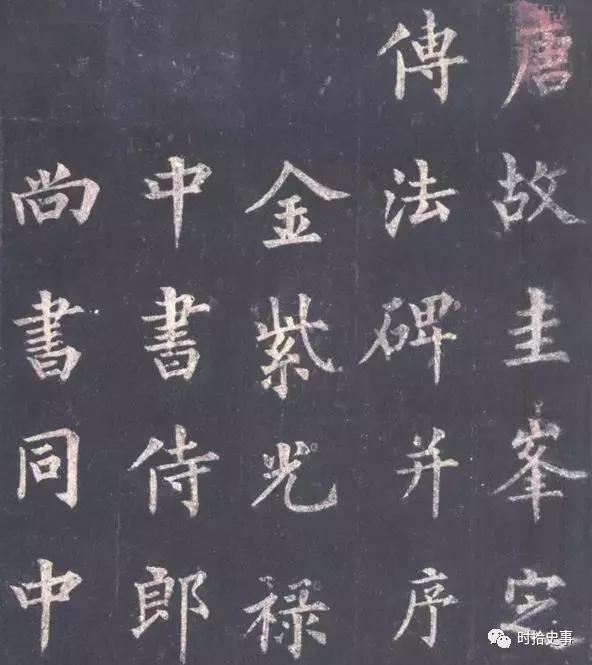 唐故圭峯定
傳法碑并序
金紫光禄
中書侍郎
尚書同中
时拾史事